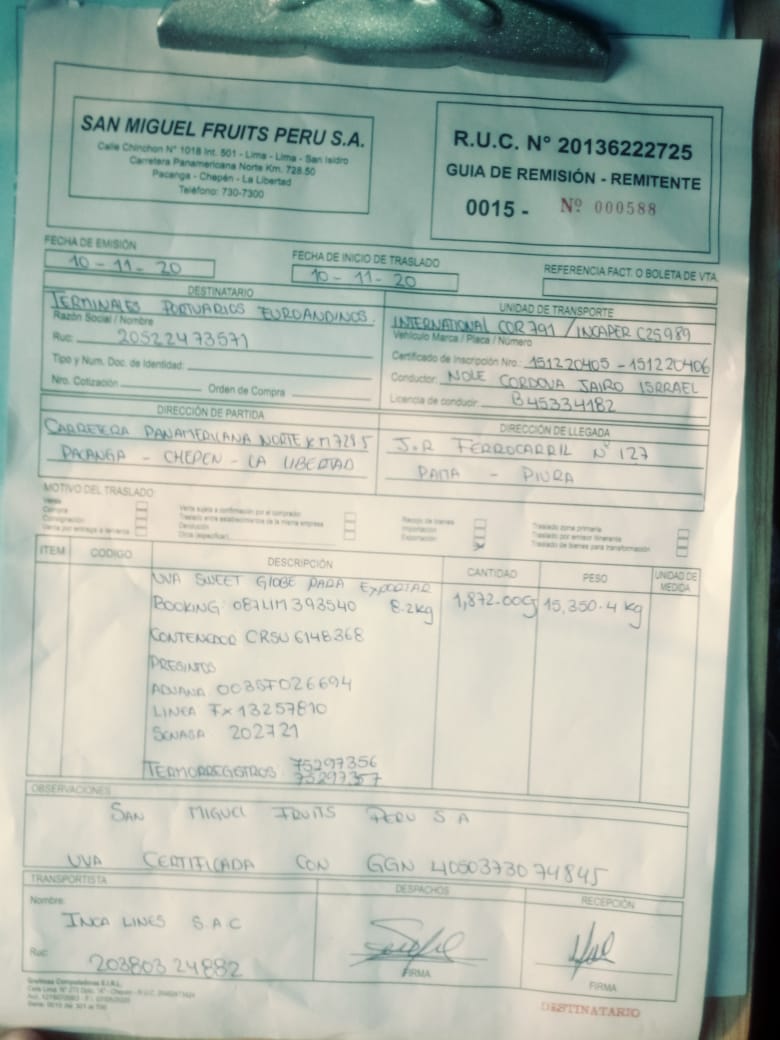 SAN MIGUEL FRUITS PERU S.A.
Calle Chinchon N° 1018 Int. 501 - Lima - Lima - San Isidro
Carretera Panamericana Norte Km. 728.50
Pacanga - Chepén - La Libertad
Teléfono: 730-7300
R.U.C. N° 20136222725
GUIA DE REMISIÓN - REMITENTE
0015 - Nº 000588
FECHA DE EMISIÓN
10-11-20
FECHA DE INICIO DE TRASLADO
10-11-20
REFERENCIA FACT. O BOLETA DE VTA.
DESTINATARIO
TERMINALES PORTUARIOS EUROANDINOS.
Razón Social / Nombre
Ruc: 20522473571
Tipo y Num. Doc. de Identidad:
Nro. Cotización Orden de Compra
UNIDAD DE TRANSPORTE
INTERNATIONAL COR791 / INCAPER C2S989
Vehículo Marca / Placa / Número
Certificado de Inscripción Nro.: 151220405 - 151220406
Conductor: NOLE CORDOVA JAIRO ISRRAEL
Licencia de conducir: B45334182
DIRECCIÓN DE PARTIDA
CARRETERA PANAMERICANA NORTE KM 728.5
PACANGA - CHEPEN - LA LIBERTAD
DIRECCIÓN DE LLEGADA
J.R FERROCARRIL N° 127
PAITA - PIURA
MOTIVO DEL TRASLADO:
Venta
Compra
Consignación
Venta por entrega a terceros
Venta sujeta a confirmación por el comprador
Traslado entre establecimientos de la misma empresa
Devolución
Otros (especificar)
Recojo de bienes
Importación
Exportación
Traslado zona primaria
Traslado por emisor itinerante
Traslado de bienes para transformación
ITEM CODIGO DESCRIPCIÓN CANTIDAD PESO UNIDAD DE MEDIDA
UVA SWEET GLOBE PARA EXPORTAR
BOOKING: 087LIM393540 8.2kg 1,872.00 15,350.4 kg
CONTENEDOR CRSU 6148368
PRESINTOS
ADUANA 003SF026694
LINEA FX13257810
SENASA 202721
TERMORREGISTROS: 75297356
75297357
OBSERVACIONES
SAN MIGUEL FRUITS PERU S A
UVA CERTIFICADA CON GGN 4050373074845
TRANSPORTISTA
Nombre:
INCA LINES S.A.C
Ruc: 20380324882
DESPACHOS
FIRMA
RECEPCIÓN
FIRMA
DESTINATARIO